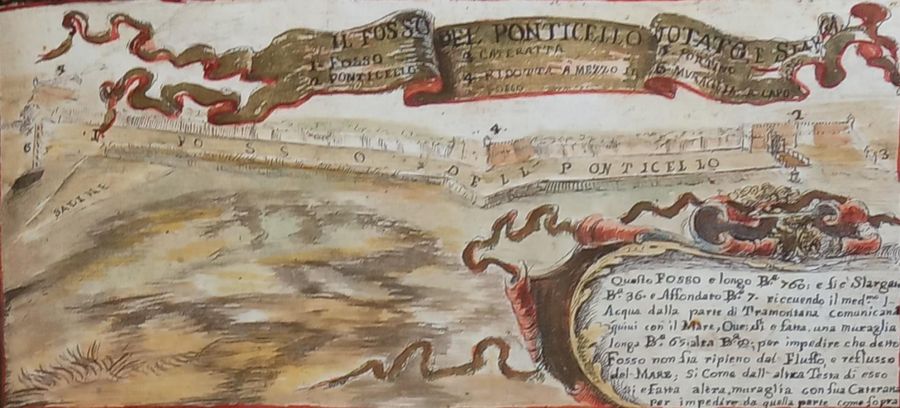 IL FOSSO DEL PONTICELLO VOTATO, E
1. FOSSO
2. PONTICELLO
3. CATERATTA
4. RIDOTTA A MEZZO IL
FOSSO
6. MURAGLIA A CAPO
3
6
1
4
2
3
FOSSO DELL PONTICELLO
SALINE
Questo FOSSO e longo B.ª 760: e si è Slarga
B.ª 36. e Affondato B.ª 7. riceuendo il med.mo l'
Acqua dalla parte di Tramontana comunican
quiui con il Mare, Oue si e fatta una muraglia
longa B.ª 65: alta B.ª per impedire che detto
Fosso non sia ripieno dal Flusso e reflusso
del MARE; Si Come dall altra Testa di esso
si e fatta altra muraglia con sua Catera
per impedire da quella parte come sopra